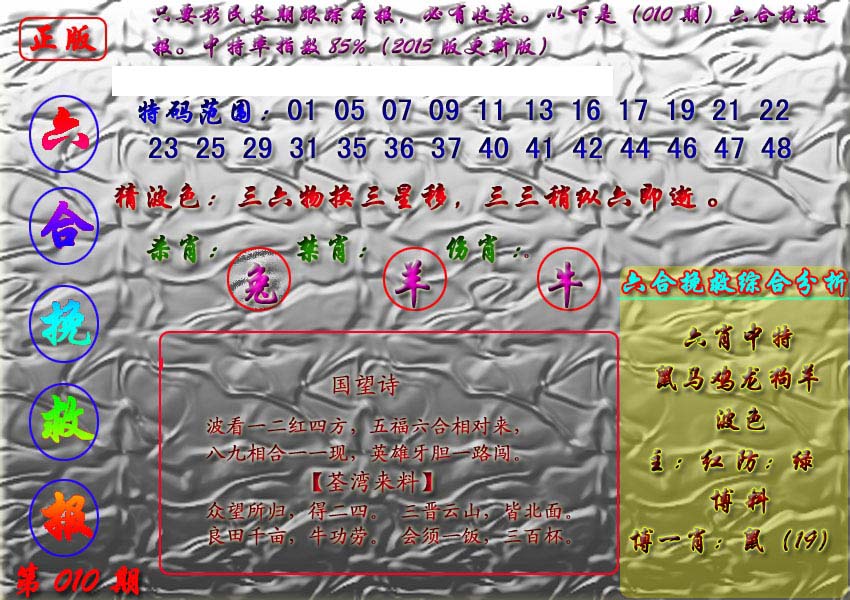 正版
只要彩民长期跟踪本报，必有收获。以下是（010 期）六合挽救
报。中特率指数 85%（2015 版更新版）
六合挽救报
第 010 期
特码范围：01 05 07 09 11 13 16 17 19 21 22
23 25 29 31 35 36 37 40 41 42 44 46 47 48
猜波色：三六物换三星移，三三稍纵六即逝。
杀肖： 禁肖： 伤肖：。
兔 羊 牛
国望诗
波看一二红四方，五福六合相对来，
八九相合一一现，英雄牙胆一路闯。
【荃湾来料】
众望所归，得二四。 三晋云山，皆北面。
良田千亩，牛功劳。 会须一饭，三百杯。
六合挽救综合分析
六肖中特
鼠马鸡龙狗羊
波色
主：红防：绿
博料
博一肖：鼠（19）